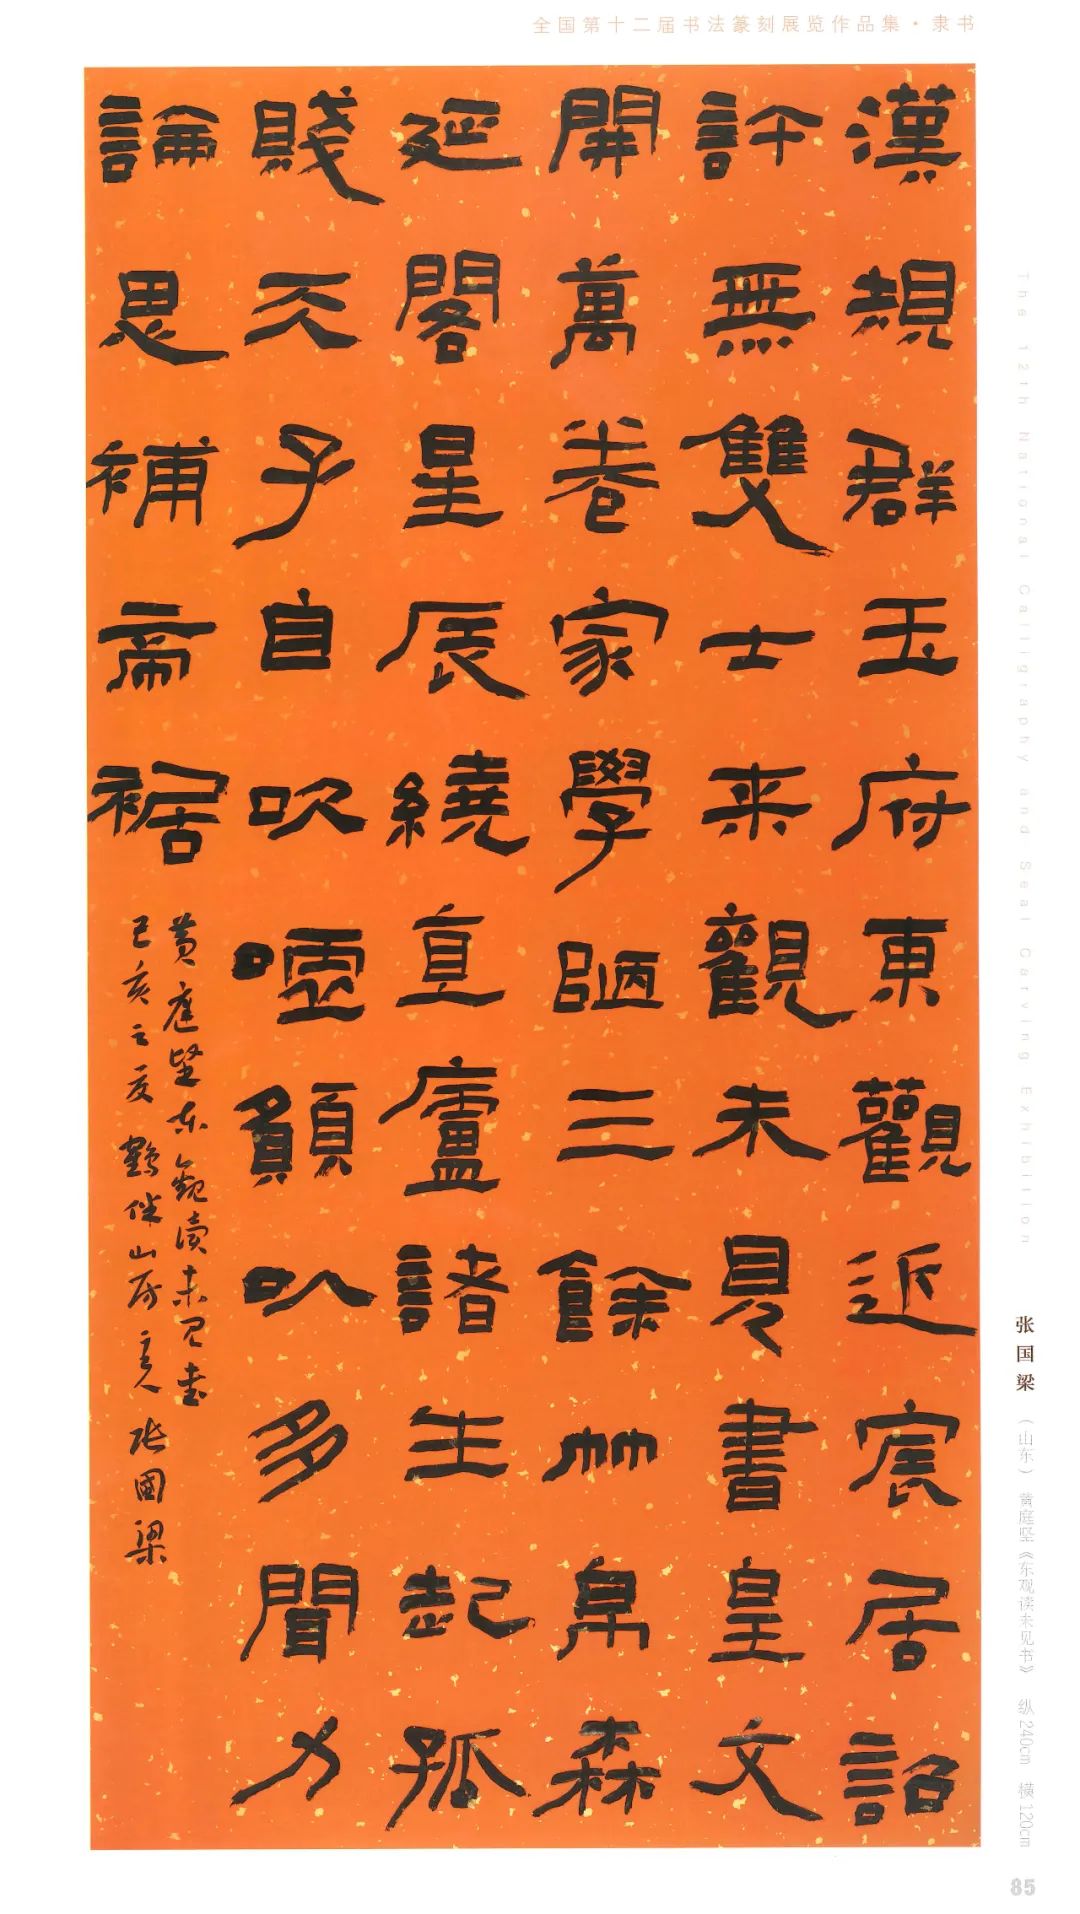 全国第十二届书法篆刻展览作品集·隶书
漢規群玉府東觀近宸居詔
許無雙士来觀未見書皇文
開萬卷家學陋三餘竹帛森
延閣星辰繞直廬諸生起孤
賤天子自吹噓願以多聞力
論思補帝裾
黄庭坚东觀读未见书
己亥之夏 鶴伴山房主人 张國梁
The 12th National Calligraphy and Seal Carving Exhibition
张国梁 （山东） 黄庭坚《东观读未见书》 纵240cm 横120cm
85